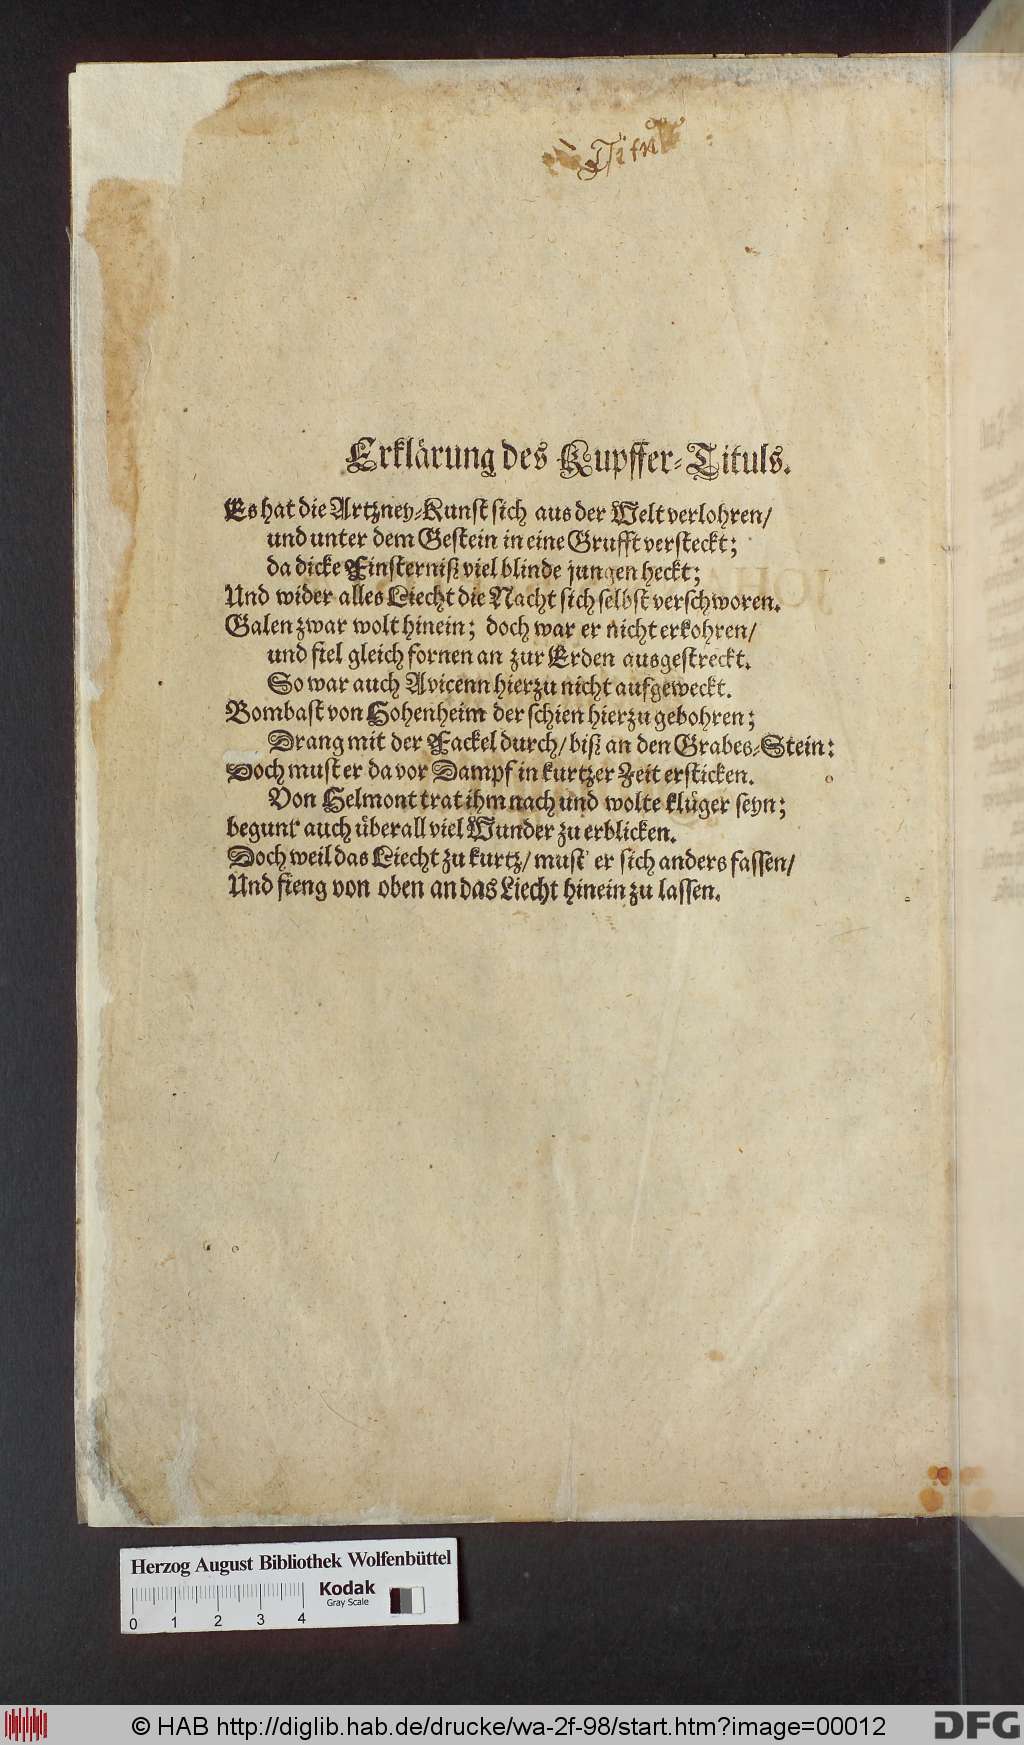 Titul
Erklärung des Kupffer-Tituls.
Es hat die Artzney-Kunst sich aus der Welt verlohren/
und unter dem Gestein in eine Grufft versteckt;
da dicke Finsterniß viel blinde jungen heckt;
Und wider alles Liecht die Nacht sich selbst verschworen.
Galen zwar wolt hinein; doch war er nicht erkohren/
und fiel gleich fornen an zur Erden ausgestreckt.
So war auch Avicenn hierzu nicht aufgeweckt.
Bombast von Hohenheim der schien hierzu gebohren;
Drang mit der Fackel durch/ biß an den Grabes-Stein:
Doch must er da vor Dampf in kurtzer Zeit ersticken.
Von Helmont trat ihm nach und wolte klüger seyn;
begunt auch überall viel Wunder zu erblicken.
Doch weil das Liecht zu kurtz/ must er sich anders fassen/
Und fieng von oben an das Liecht hinein zu lassen.
Herzog August Bibliothek Wolfenbüttel
Kodak
Gray Scale
0 1 2 3 4
© HAB http://diglib.hab.de/drucke/wa-2f-98/start.htm?image=00012
DFG